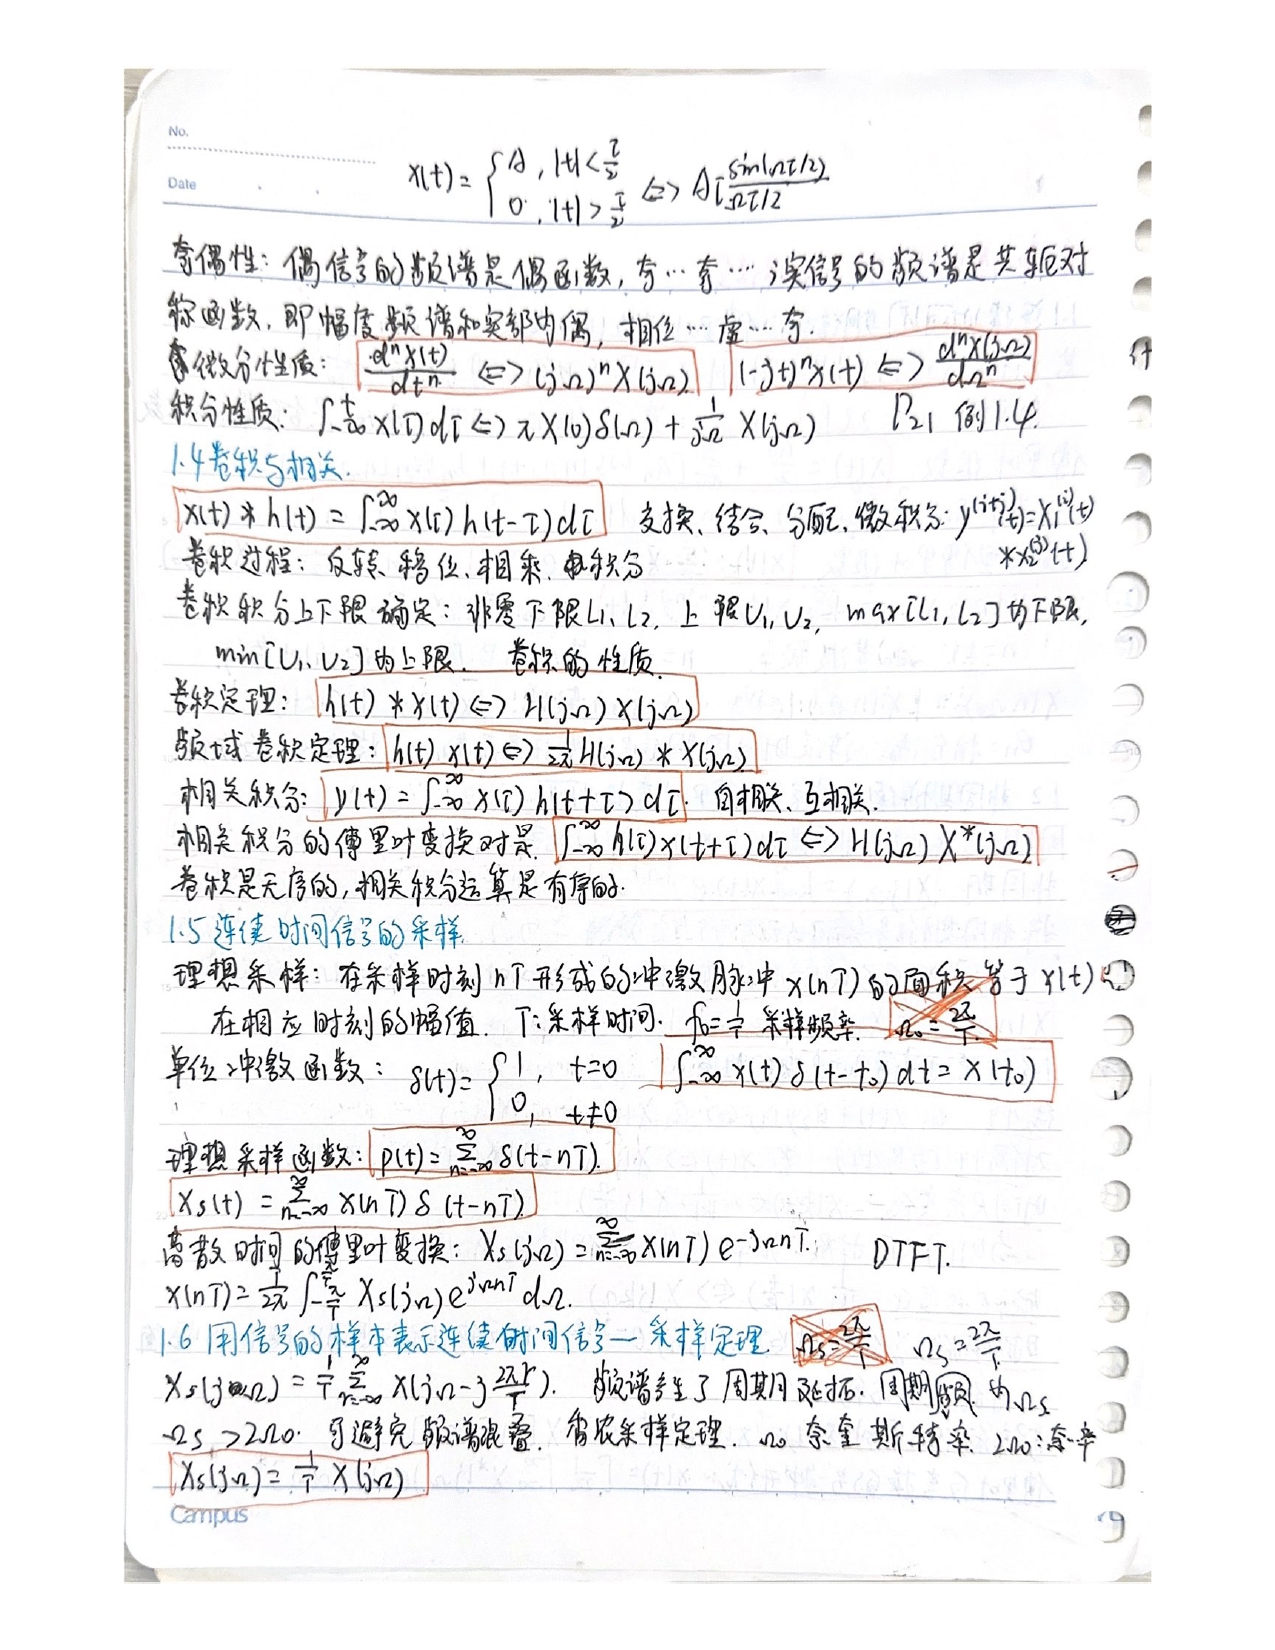 No.
Date
x(t) = { A, |t| < τ/2 ; 0, |t| > τ/2 ⇔ Aτ sin(Ωτ/2) / Ωτ/2
奇偶性：偶信号的频谱是偶函数，奇…奇…；实信号的频谱是共轭对
称函数，即幅度频谱和实部为偶，相位…虚…奇.
微分性质： dⁿx(t)/dtⁿ ⇔ (jΩ)ⁿX(jΩ) (-jt)ⁿx(t) ⇔ dⁿX(jΩ)/dΩⁿ
积分性质：∫_{-∞}^{t} x(τ)dτ ⇔ πX(0)δ(Ω) + 1/jΩ X(jΩ) P21 例1.4.
1.4 卷积与相关.
x(t) * h(t) = ∫_{-∞}^{∞} x(τ) h(t-τ) dτ 交换、结合、分配、微积分：y^{(i+j)}(t) = x₁^{(i)}(t)
* x₂^{(j)}(t)
卷积过程：反转、移位、相乘、积分
卷积积分上下限确定：非零下限L₁, L₂, 上限U₁, U₂, max[L₁, L₂]为下限,
min[U₁, U₂]为上限. 卷积的性质.
卷积定理： h(t) * x(t) ⇔ H(jΩ) X(jΩ)
频域卷积定理： h(t) x(t) ⇔ 1/2π H(jΩ) * X(jΩ)
相关积分： y(t) = ∫_{-∞}^{∞} x(τ) h(t+τ) dτ. 自相关、互相关.
相关积分的傅里叶变换对是 ∫_{-∞}^{∞} h(τ) x(t+τ) dτ ⇔ H(jΩ) X*(jΩ)
卷积是无序的，相关积分运算是有序的.
1.5 连续时间信号的采样
理想采样：在采样时刻nT形成的冲激脉冲x(nT)的面积等于x(t)
在相应时刻的幅值. T：采样时间. f₀ = 1/T 采样频率. Ω₀ = 2π/T
单位冲激函数： δ(t) = { 1, t=0 ; 0, t≠0 ∫_{-∞}^{∞} x(t) δ(t-t₀) dt = x(t₀)
理想采样函数： p(t) = Σ_{n=-∞}^{∞} δ(t-nT).
Xs(t) = Σ_{n=-∞}^{∞} x(nT) δ(t-nT)
离散时间的傅里叶变换： Xs(jΩ) = Σ_{n=-∞}^{∞} x(nT) e^{-jΩnT}. DTFT.
x(nT) = T/2π ∫_{-π/T}^{π/T} Xs(jΩ) e^{jΩnT} dΩ.
1.6 用信号的样本表示连续时间信号—采样定理. Ωs = 2π/T Ωs = 2π/T
Xs(jΩ) = 1/T Σ_{r=-∞}^{∞} X(jΩ - j 2πr/T). 频谱产生了周期延拓. 周期 为Ωs
Ωs > 2Ω₀. 可避免频谱混叠. 香农采样定理. Ω₀ 奈奎斯特率. 2Ω₀：奈…率
Xs(jΩ) = 1/T X(jΩ)
Campus